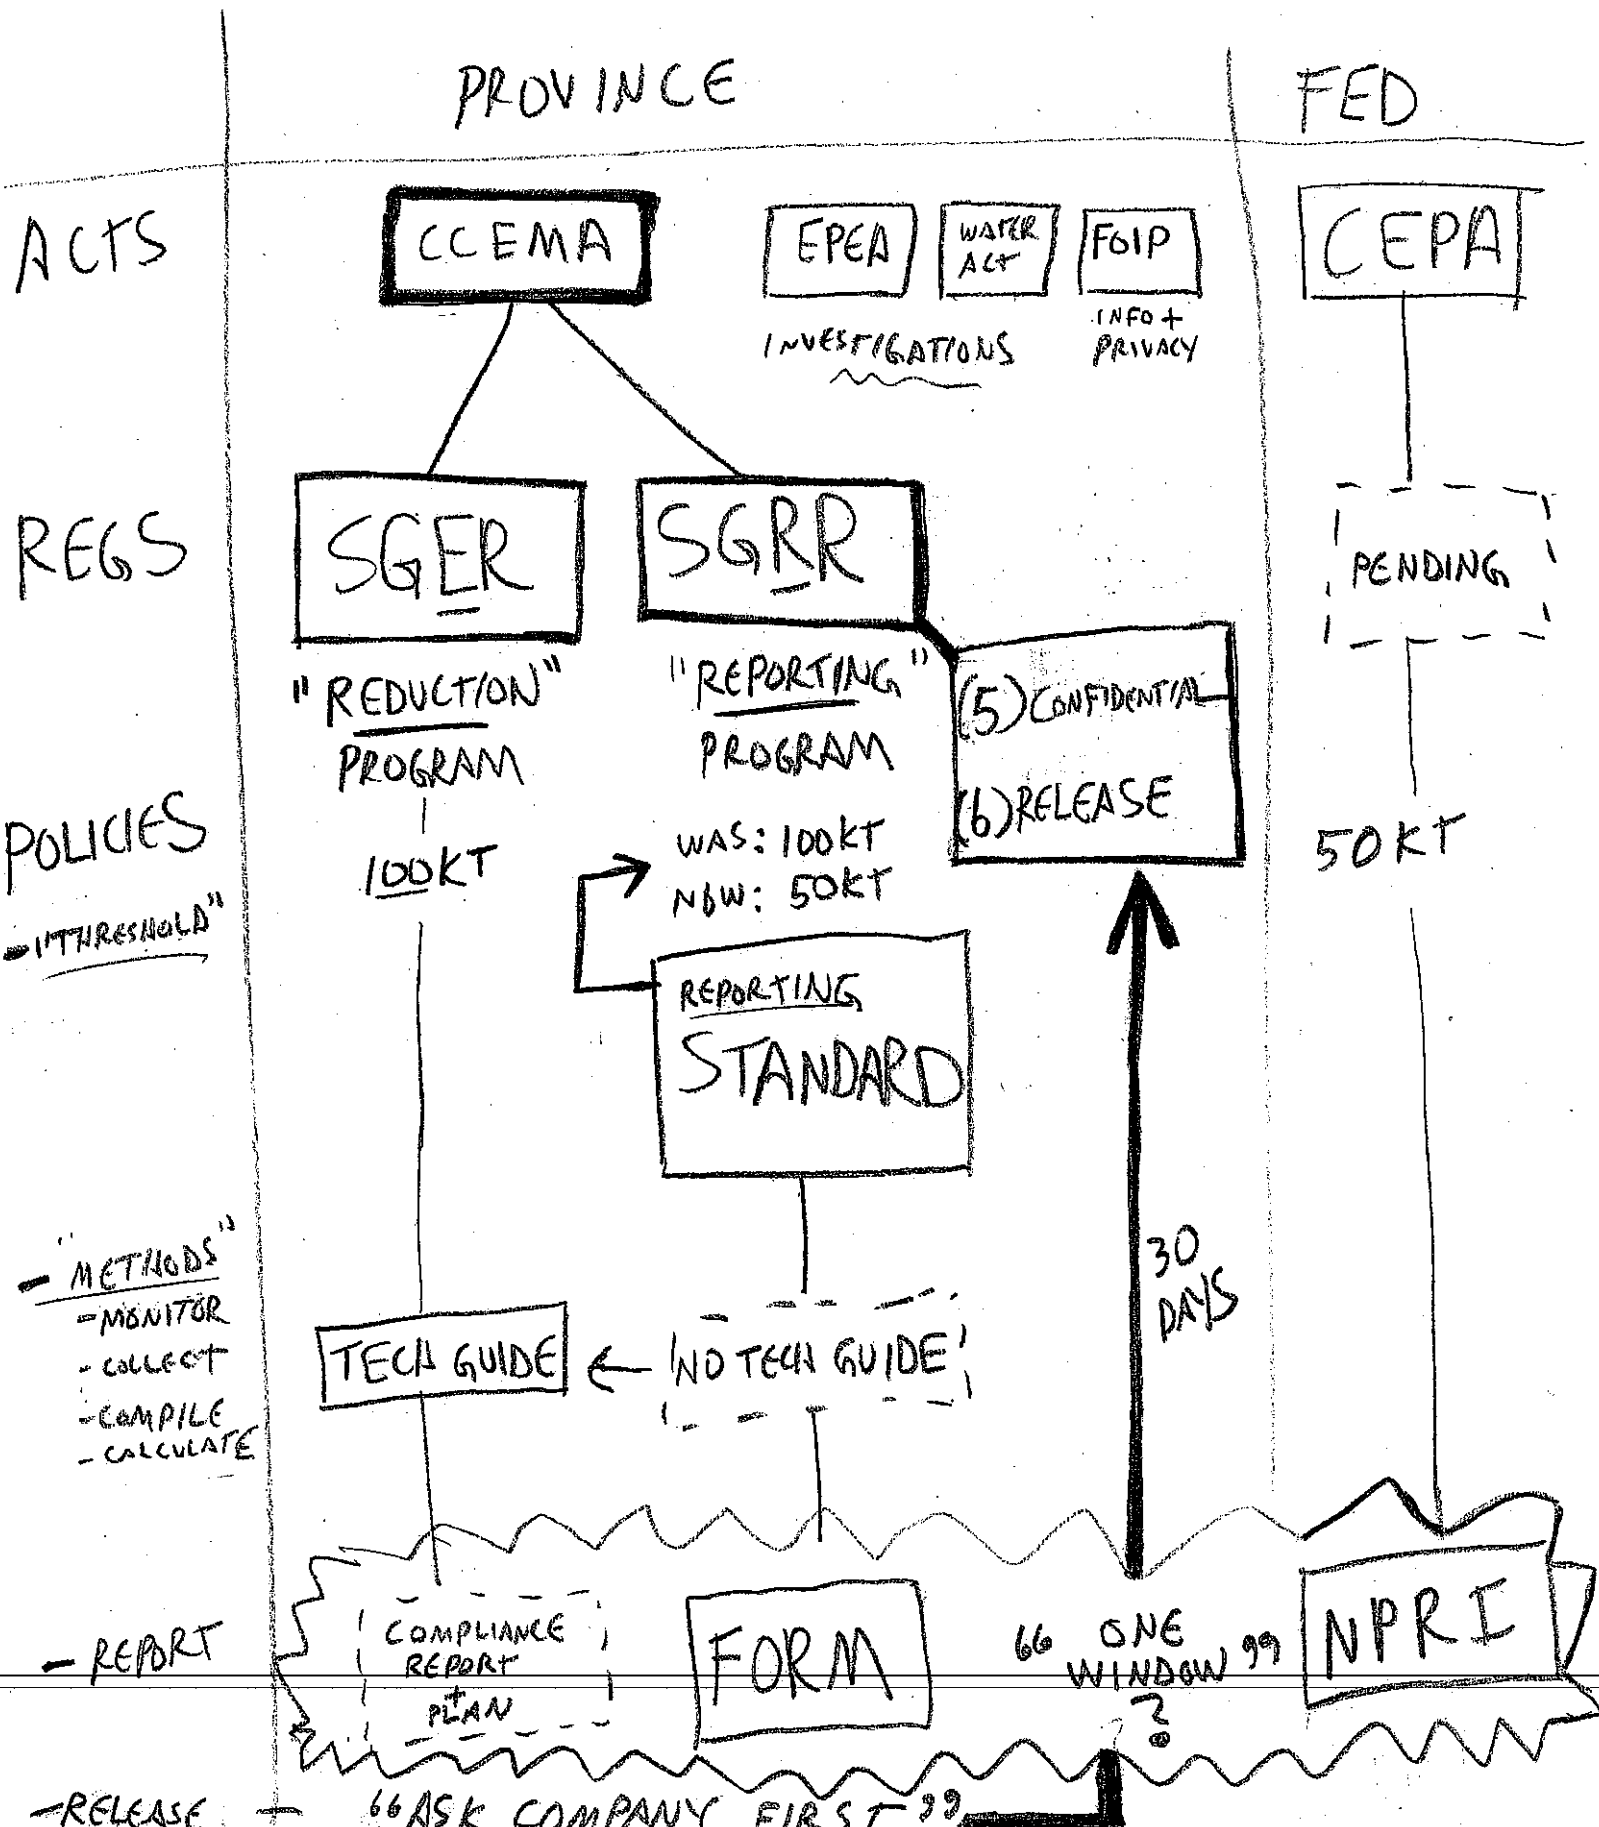 PROVINCE
FED
ACTS
CCEMA
EPEA
WATER
ACT
FOIP
CEPA
INVESTIGATIONS
INFO +
PRIVACY
REGS
SGER
SGRR
PENDING
"REDUCTION"
PROGRAM
"REPORTING"
PROGRAM
(5) CONFIDENTIAL
(6) RELEASE
POLICIES
- "THRESHOLD"
100KT
WAS: 100KT
NOW: 50KT
50KT
REPORTING
STANDARD
30
DAYS
- "METHODS"
- MONITOR
- COLLECT
- COMPILE
- CALCULATE
TECH GUIDE
NO TECH GUIDE
- REPORT
COMPLIANCE
REPORT
+
PLAN
FORM
"ONE
WINDOW"
?
NPRI
- RELEASE - "ASK COMPANY FIRST"